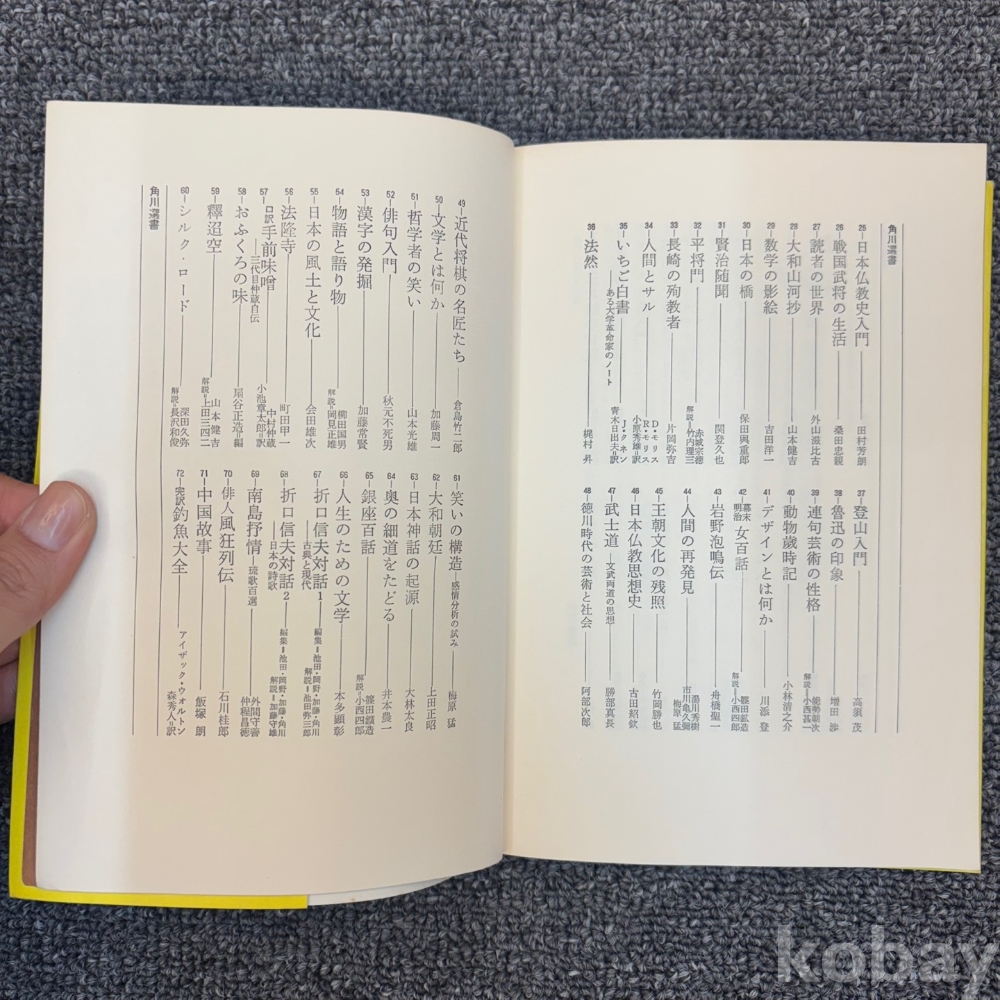 角川選書
25 日本仏教史入門 田村芳朗
26 戦国武将の生活 桑田忠親
27 読者の世界 外山滋比古
28 大和山河抄 山本健吉
29 数学の影絵 吉田洋一
30 日本の橋 保田與重郎
31 賢治随聞 関登久也
32 平将門 赤城宗徳 解説=竹内理三
33 長崎の殉教者 片岡弥吉
34 人間とサル D・モリス R・モリス 小原秀雄=訳
35 いちご白書 ―ある大学革命家のノート J・クネン 青木日出夫=訳
36 法然 梶村昇
37 登山入門 高須茂
38 魯迅の印象 増田渉
39 連句芸術の性格 能勢朝次 解説=小西甚一
40 動物歳時記 小林清之介
41 デザインとは何か 川添登
42 幕末明治 女百話 篠田鉱造 解説=小西四郎
43 岩野泡鳴伝 舟橋聖一
44 人間の再発見 湯川秀樹 市川亀久彌 梅原猛
45 王朝文化の残照 竹岡勝也
46 日本仏教思想史 古田紹欽
47 武士道 ―文武両道の思想 勝部真長
48 徳川時代の芸術と社会 阿部次郎
49 近代将棋の名匠たち 倉島竹二郎
50 文学とは何か 加藤周一
51 哲学者の笑い 山本光雄
52 俳句入門 秋元不死男
53 漢字の発掘 加藤常賢
54 物語と語り物 柳田国男 解説=岡見正雄
55 日本の風土と文化 会田雄次
56 法隆寺 町田甲一
57 口訳 手前味噌 ―三代目仲蔵自伝 中村仲蔵 小池章太郎=訳
58 おふくろの味 扇谷正造=編
59 釋迢空 山本健吉 解説=上田三四二
60 シルク・ロード 深田久弥 解説=長沢和俊
角川選書
61 笑いの構造 ―感情分析の試み 梅原猛
62 大和朝廷 上田正昭
63 日本神話の起源 大林太良
64 奥の細道をたどる 井本農一
65 銀座百話 篠田鉱造 解説=小西四郎
66 人生のための文学 本多顕彰
67 折口信夫対話1 ―古典と現代 編集=池田・岡野・加藤・角川 解説=池田弥三郎
68 折口信夫対話2 ―日本の詩歌 編集=池田・岡野・加藤・角川 解説=加藤守雄
69 南島抒情 ―琉歌百選 外間守善 仲程昌徳
70 俳人風狂列伝 石川桂郎
71 中国故事 飯塚朗
72 完訳 釣魚大全 アイザック・ウォルトン 森秀人=訳
kobay